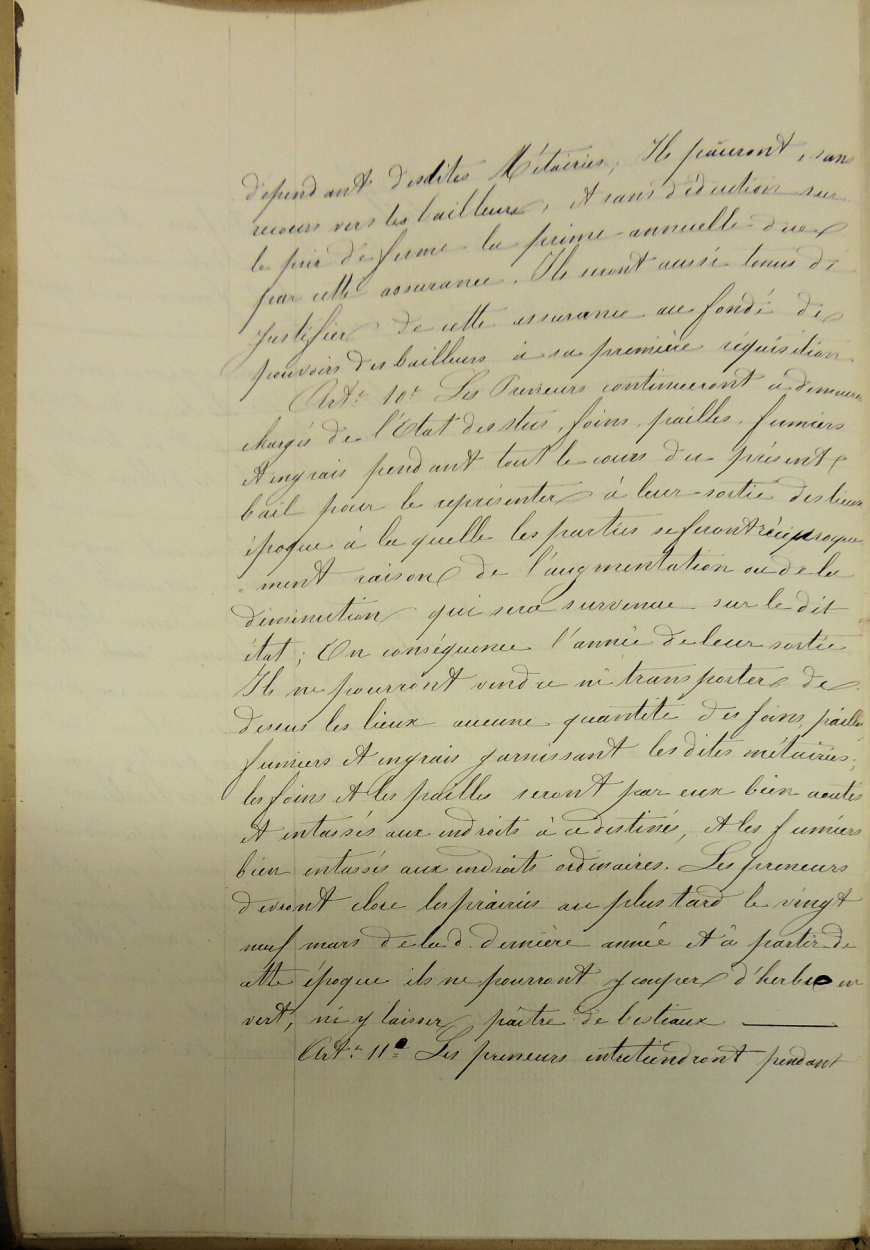 dépendant desdites Métairies; Ils paieront, sans
recours vers les bailleurs, et sans déduction sur
le prix de ferme la prime annuelle due
par cette assurance. Ils seront aussi tenus de
justifier de cette assurance au fondé de
pouvoirs des bailleurs à sa première réquisition
Art.e 10e Les Preneurs continueront à demeurer
chargés de l'Etat des stus, foins, pailles, fumiers
et engrais pendant tout le cours du présent
bail pour le représenter à leur sortie des lieux
époque à la quelle les parties se feront réciproque
-ment raison de l'augmentation ou de la
diminution qui sera survenue sur le dit
état; En conséquence l'année de leur sortie
Ils ne pourront vendre ni transporter de
dessus les lieux aucune quantité des foins, pailles
fumiers et engrais garnissant les dites métairies;
les foins et les pailles seront par eux bien
et entassés aux endroits à ce destinés, et les fumiers
bien entassés aux endroits ordinaires. Les preneurs
devront clore les prairies au plus tard le vingt
neuf mars de la d. dernière année et à partir de
cette époque ils ne pourront y couper d'herbe en
vert, ni y laisser paître de bestiaux
Art.e 11e Les preneurs entretiendront pendant